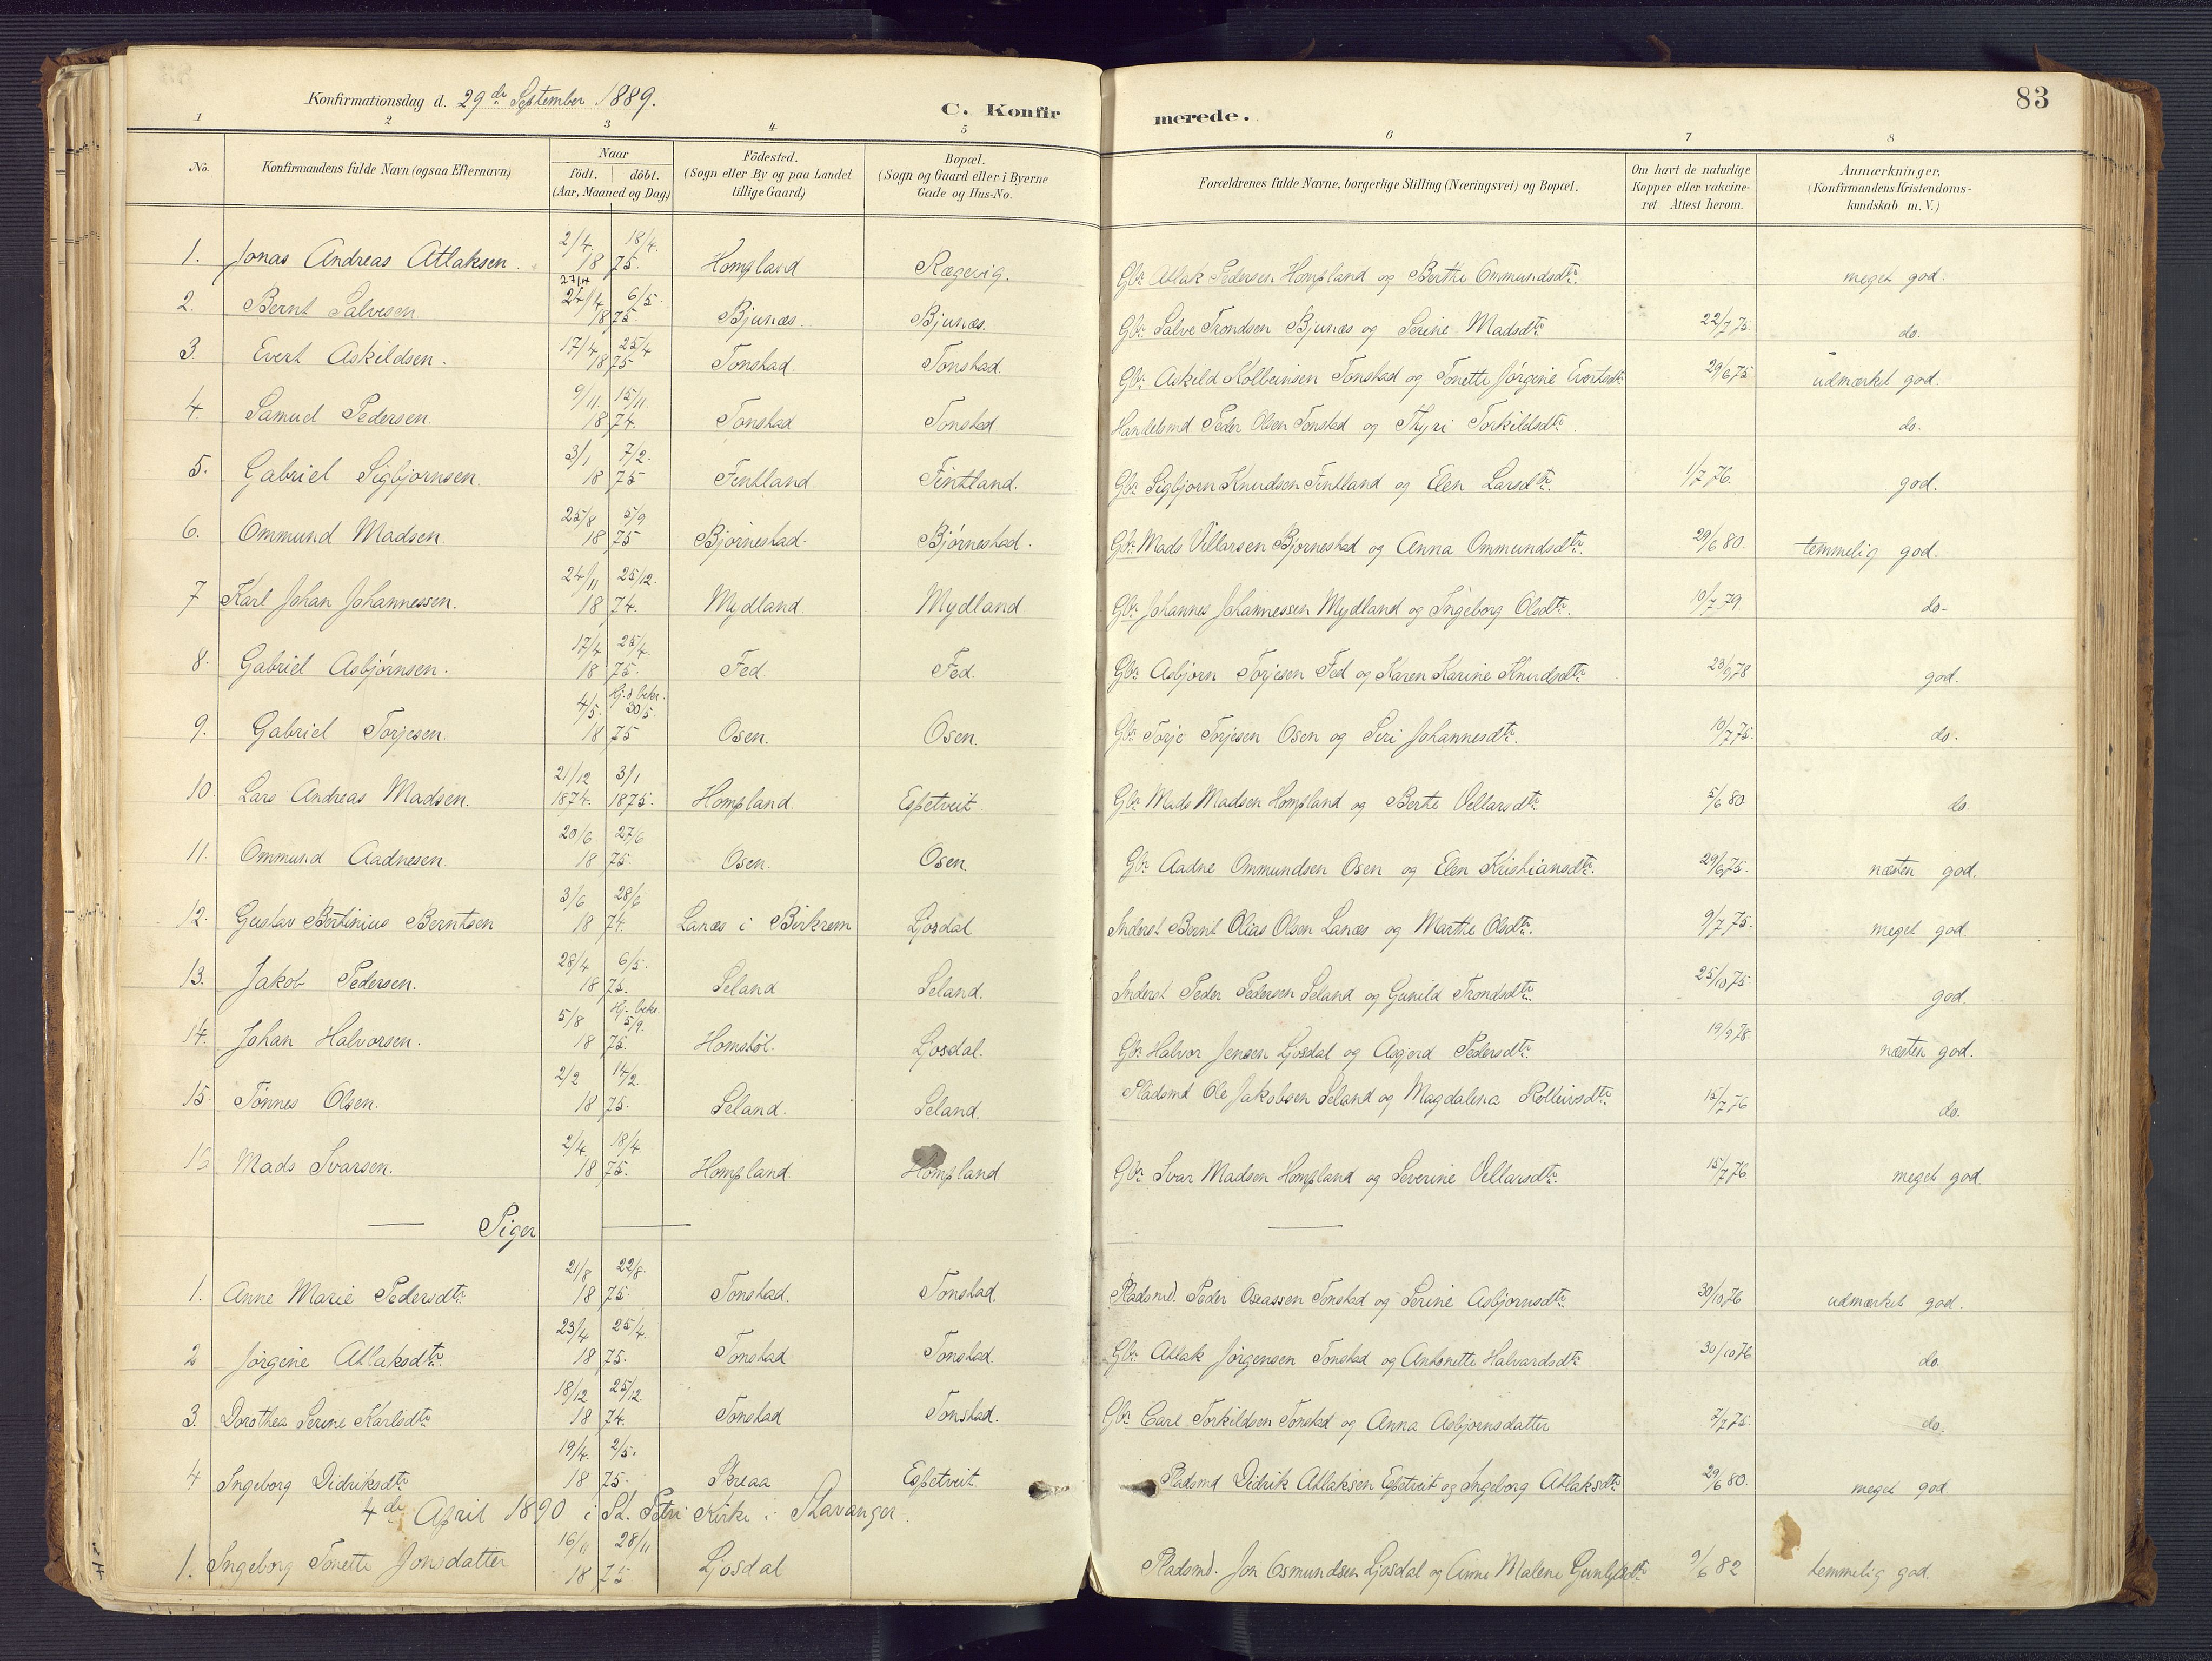 83
Konfirmationsdag d. 29de September 1889.
C. Konfirmerede.
1 2 3 4 5 6 7 8
No. Konfirmandens fulde Navn (ogsaa Efternavn) Naar födt. döbt. (Aar, Maaned og Dag) Födested. (Sogn eller By og paa Landet tillige Gaard) Bopæl. (Sogn og Gaard eller i Byerne Gade og Hus-No. Forældrenes fulde Navne, borgerlige Stilling (Næringsvei) og Bopæl. Om havt de naturlige Kopper eller vakcineret. Attest herom. Anmærkninger, (Konfirmandens Kristendomskundskab m. V.)
1. Jonas Andreas Atlaksen. 2/4. 18/4. 1875. Hompland Rægevig. Gbr. Atlak Pedersen Hompland og Berthe Ommundsdtr. meget god.
2. Bernt Salvesen 24/4 6/5. 1875. Bjunæs. Bjunæs. Gbr. Salve Trondsen Bjunæs og Serine Madsdtr. 22/7 75. do.
3. Evert Askildsen. 17/4 25/4 1875 Tonstad. Tonstad. Gbr. Askild Kolbeinsen Tonstad og Tonette Jörgine Evertsdtr. 29/6 75 udmærket god.
4. Samuel Pedersen. 9/11. 15/11. 1874. Tonstad Tonstad. Handelsmd Peder Olsen Tonstad og Thyri Torkildsdtr. do.
5. Gabriel Sigbjornsen. 3/1 7/2. 1875 Fintland. Fintland. Gbr. Sigbjorn Knudsen Fintland og Elen Larsdtr. 1/7 76. god.
6. Ommund Madsen. 25/8 5/9 1875 Bjornestad. Björnestad. Gbr. Mads Villarsen Bjornestad og Anna Ommundsdtr. 29/6 80. temmelig god.
7 Karl Johan Johannessen. 24/11 25/12. 1874. Mydland Mydland Gbr. Johannes Johannessen Mydland og Ingeborg Olsdtr. 10/7 79. do.
8. Gabriel Asbjörnsen. 17/4 25/4. 1875. Fed. Fed. Gbr. Asbjorn Torjesen Fed og Karen Karine Knudsdtr. 23/9 78 god.
9. Gabriel Torjesen. 4/5. Hj.d bekr. 30/5. 1875 Osen. Osen. Gbr. Torje Torjesen Osen og Siri Johannesdtr. 10/7 75. do.
10. Lars Andreas Madsen. 21/12 3/1 1874. 1875. Hompland. Espetveit. Gbr. Mads Madsen Hompland og Berte Vellarsdtr. 5/6 80 do.
11. Ommund Aadnesen. 20/6 27/6 1875. Osen. Osen. Gbr. Aadne Ommundsen Osen og Elen Kristiansdtr. 29/6 75. næsten god.
12. Gustav Bertinius Berntsen 3/6 28/6 1874. Lanæs i Birkrem Ljosdal Inderst Bernt Olias Olsen Lanæs og Marthe Olsdtr. 9/7 75. meget god.
13. Jakob Pedersen. 28/4 6/5. 1875. Seland Seland. Inderst Peder Pedersen Seland og Gunild Trondsdtr. 25/10 75. god
14. Johan Halvorsen. 5/8 Hj. bekr. 5/9. 1875. Homstöl. Ljosdal. Gbr Halvor Jensen Ljosdal og Asgjerd Pedersdtr. 19/9 78. næsten god.
15. Tönnes Olsen. 2/2 14/2. 1875. Seland. Seland. Pladsmd Ole Jakobsen Seland og Magdalena 15/7 76 do.
16 Mads Ivarsen. 2/4. 18/4. 1875. Hompland. Hompland Gbr. Ivar Madsen Hompland og Severine Vellarsdtr. 15/7 76. meget god.
Piger
1. Anne Marie Pedersdtr. 21/8 22/8. 1875 Tonstad. Tonstad. Pladsmd. Peder Oseassen Tonstad og Serine Asbjornsdtr. 30/10 76 udmærket god.
2 Jörgine Atlaksdtr. 23/4 25/4. 1875. Tonstad Tonstad. Gbr. Atlak Jörgensen Tonstad og Antonette Halvardsdtr. 30/10 76 do.
3. Dorothea Serine Karlsdtr 18/12 25/12. 1874. Tonstad Tonstad. Gbr. Carl Torkildsen Tonstad og Anna Asbjornsdatter 7/7 75. do.
4 Ingeborg Didriksdtr 19/4. 2/5. 1875. Skreaa Espetveit Pladsmd Didrik Atlaksen Espetveit og Ingeborg Atlaksdtr 29/6 80. meget god
4de April 1890 i St. Petri Kirke i Stavanger.
1. Ingeborg Tonette Jonsdatter 16/11 28/11 1875 Ljosdal Pladsmd. Jon Osmundsen Ljosdal og Anne Malene 9/6 82 temmelig god.